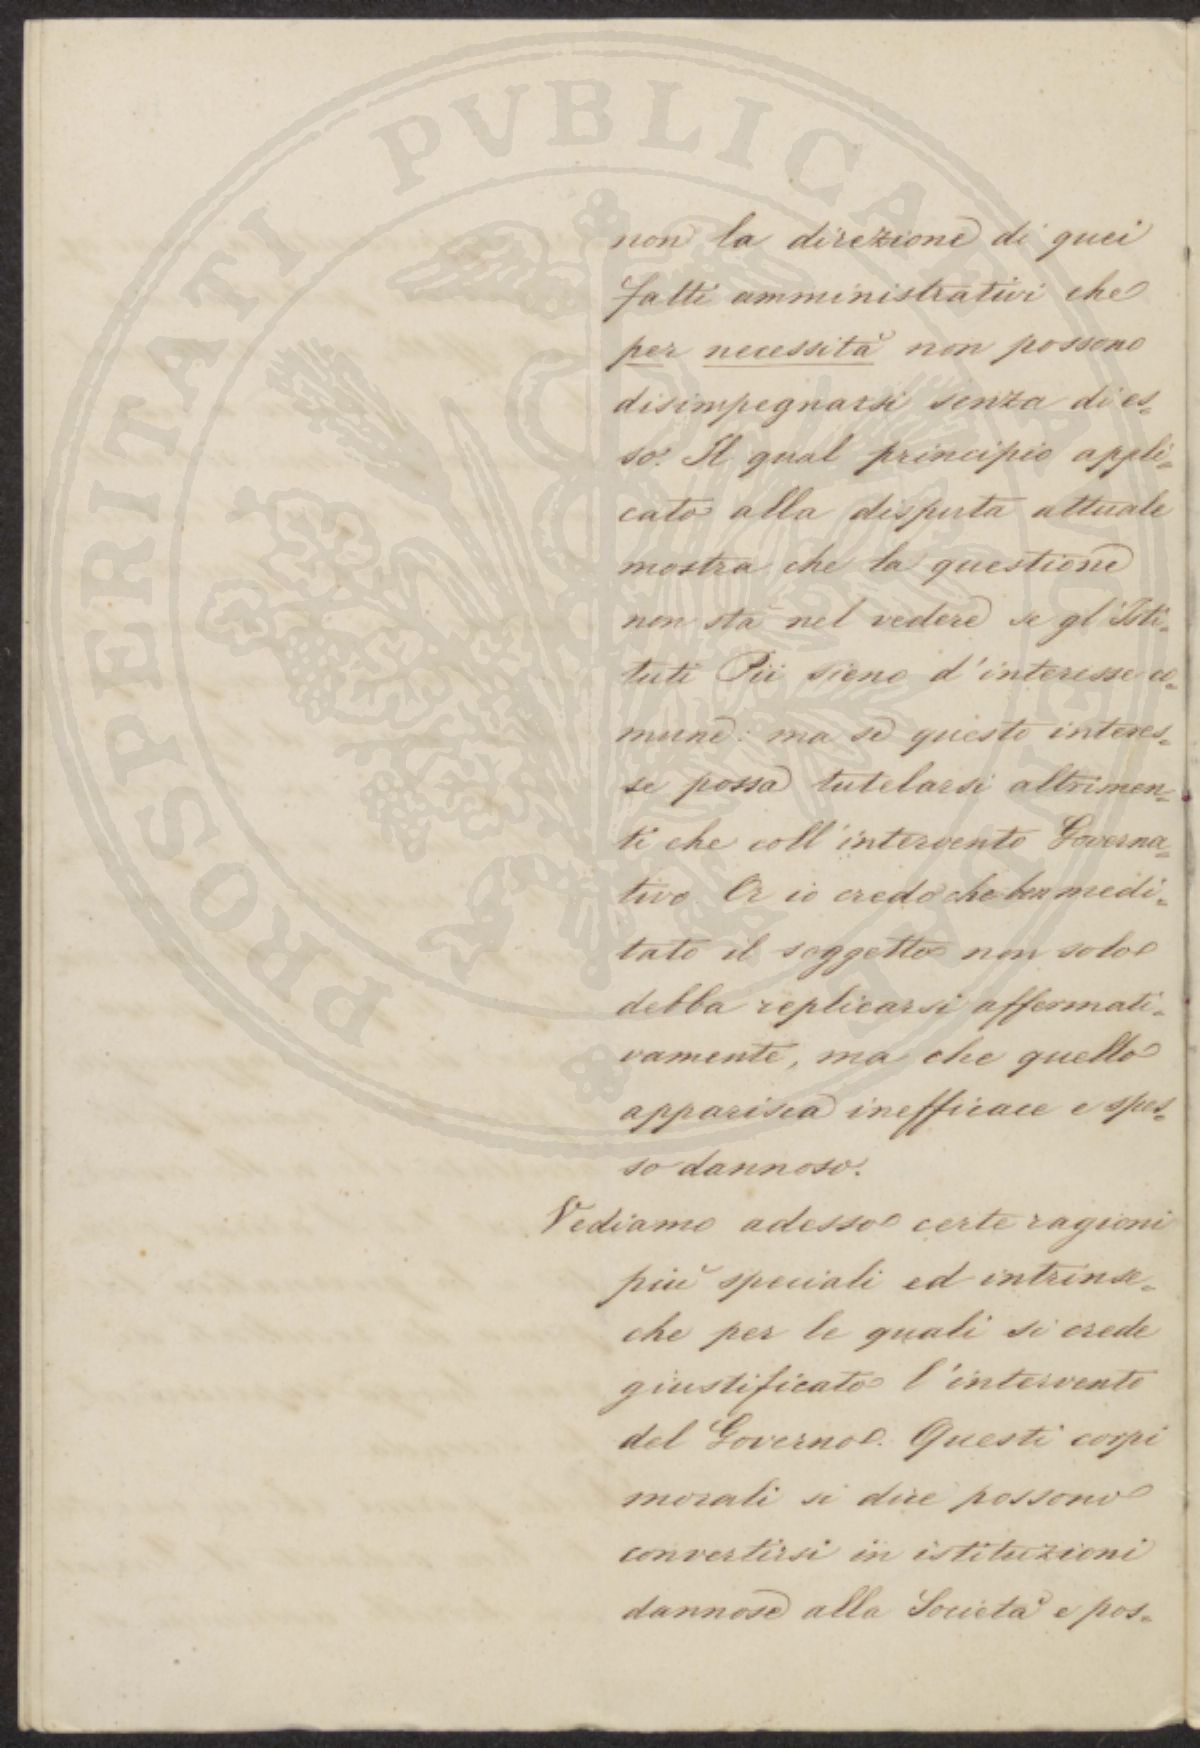 PROSPERITATI PVBLICAE AVGENDAE
non la direzione di quei
fatti amministrativi che
per necessità non possono
disimpegnarsi senza di es-
so. Il qual principio appli-
cato alla disputa attuale
mostra che la questione
non sta nel vedere se gl'Isti-
tuti Pii sieno d'interesse co-
mune: ma se questo interes-
se possa tutelarsi altrimen-
ti che coll'intervento Governa-
tivo. Or io credo che ben medi-
tato il soggetto non solo
debba replicarsi affermati-
vamente, ma che quello
apparisca inefficace e spes-
so dannoso.
Vediamo adesso certe ragioni
più speciali ed intrinse-
che per le quali si crede
giustificato l'intervento
del Governo. Questi corpi
morali si dice possono
convertirsi in istituzioni
dannose alla Società e pos-